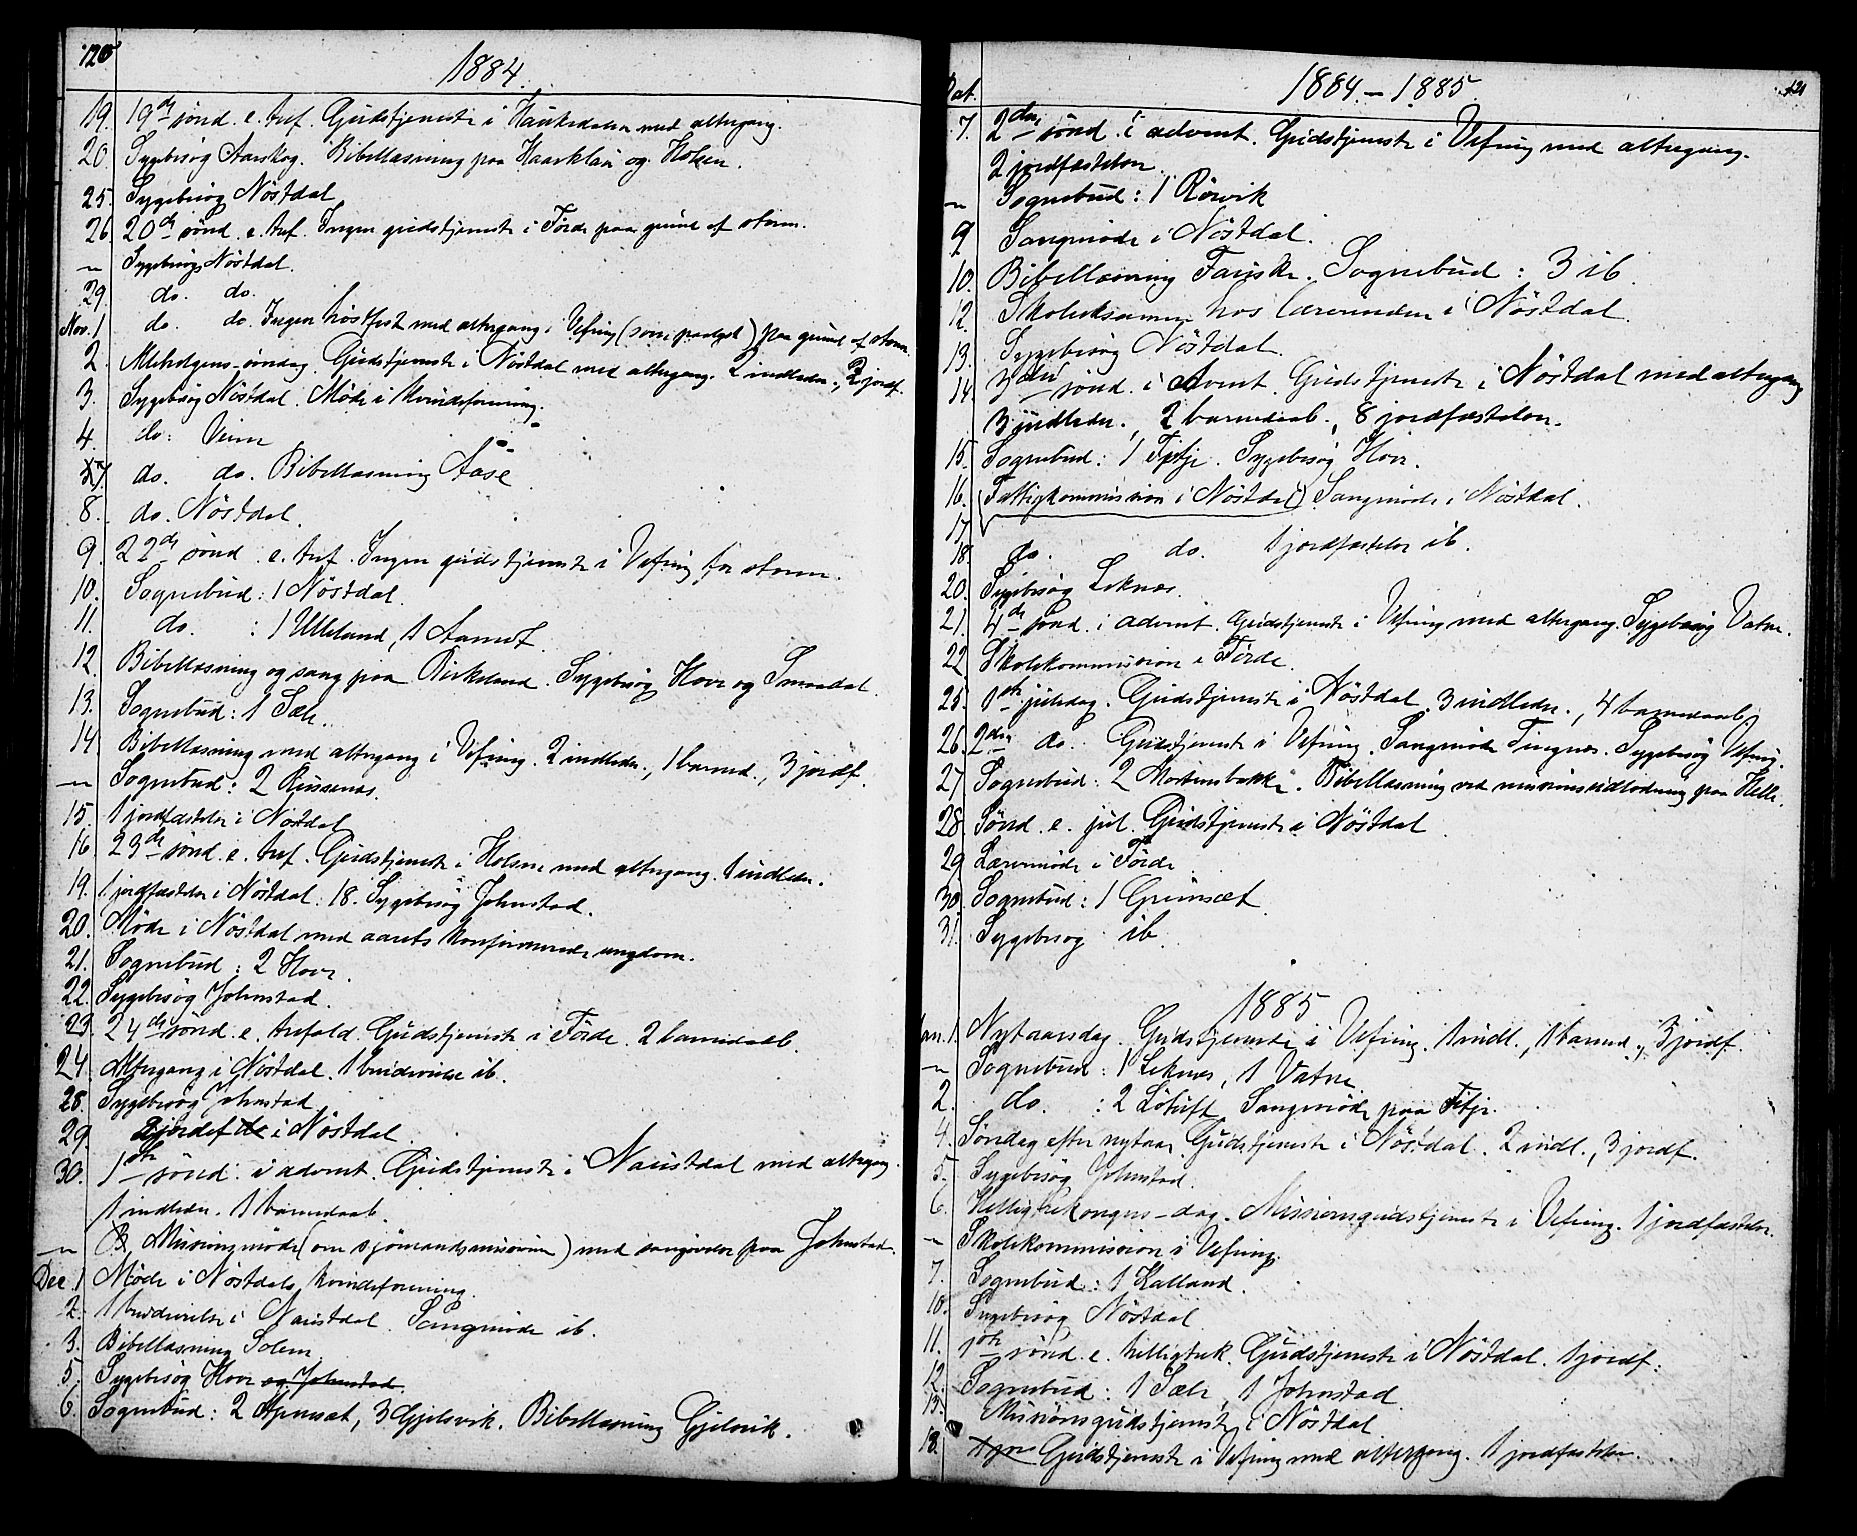 120
1884.
19. 19de sönd. e. tref. Gudstjeneste i Haukedalen med altergang.
20. Sygebesög Aarskog. Bibellæsning paa Haarklau og Holsen.
25. Sygebesög Nöstdal
26. 20de sönd. e. tref. Ingen gudstjeneste i Förde paa grund af storm.
— Sygebesög Nöstdal.
29. do. do.
Nov. 1 do. do. Ingen höstfest med altergang i Vefring (som paalyst) paa grund af storm.
2. Allehelgens-söndag. Gudstjeneste i Nöstdal med altergang. 2 indleder., 2 jordf.
3. Sygebesög Nöstdal. Möde i kvindeforening.
4. do:
7. do. do. Bibellæsning Aase
8. do. Nöstdal.
9. 22de sönd. e. tref. Ingen gudstjeneste i Vefring for storm.
10. Sognebud: 1 Nöstdal.
11. do. : 1 Ulleland, 1 Aamot.
12. Bibellæsning og sang paa Birkeland. Sygebesög Hove og Smaadal.
13. Sognebud: 1 Sæle.
14. Bibellæsning med altergang i Vefring. 2 indleder., 1 barned., 3 jordf.
— Sognebud: 2 Russenes.
15. 1 jordfæstelse i Nöstdal
16. 23de sönd. e. tref. Gudstjeneste i Holsen med altergang. 1 indleder.
19. 1 jordfæstelse i Nöstdal. 18. Sygebesög Johnstad.
20. Möde i Nöstdal med aarets konfirmerede ungdom.
21. Sognebud: 2 Hove.
22. Sygebesög Johnstad.
23. 24de sönd. e. trefold. Gudstjeneste i Förde. 2 barnedaab.
24. Altergang i Nöstdal. 1 brudevielse ib.
28. Sygebesög Johnstad
29. 2 jordef i Nöstdal.
30. 1ste sönd. i advent. Gudstjeneste i Naustdal med altergang.
1 indleder. 1 barnedaab.
— Missionsmöde (om sjömandsmissionen) med sangövelse paa Johnstad.
Dec. 1 Möde i Nöstdals kvindeforening.
2. 1 brudevielse i Naustdal. Sangmöde ib.
3. Bibellæsning Solem
5. Sygebesög Hove og Johnstad.
6. Sognebud: 2 3 Gjelsvik. Bibellæsning Gjelsvik.
Dat.
1884 – 1885
121
7. 2den sönd. i advent. Gudstjeneste i Vefring med altergang.
2 jordfæstelser.
— Sognebud: 1 Rörvik
9 Sangmöde i Nöstdal.
10. Bibellæsning Fauske. Sognebud: 3 ib.
12. Skoleksamen hos lærerinden i Nöstdal.
13. Sygebesög Nöstdal.
14. 3die sönd. i Advent. Gudstjeneste i Nöstdal med altergang
3 indleder., 2 barnedaab., 8 jordfæstelser.
15. Sognebud: 1 Fitje. Sygebesög Hove.
16. (Fattigkommission i Nöstdal) Sangmöde i Nöstdal.
17
18. do. do. 1 jordfæstelse ib.
20. Sygebesög Leknes.
21. 4de sönd. i advent. Gudstjeneste i Vefring med altergang. Sygebesög Vatne.
22 Skolekommission i Förde.
25. 1ste juledag. Gudstjeneste i Nöstdal. 3 indleder., 4 barnedaab.
26. 2den do. Gudstjeneste i Vefring. Sangmöde Tingnes. Sygebesög Vefring.
27 Sognebud: 2 Mortensbakke. Bibellæsning ved missionsudlodning paa Helle.
28 Sönd. e. jul. Gudstjeneste i Nöstdal.
29 Lærermöde i Förde
30. Sognebud: 1 Grimsæt.
31. Sygebesög ib.
1885
Jan. 1. Nytaarsdag. Gudstjeneste i Vefring. 1 indl., 1 barned., 3 jordf.
— Sognebud: 1 Leknes, 1 Vatne.
2. do. : 2 Lötuft. Sangmöde paa Fitje.
4. Söndag efter nytaar. Gudstjeneste i Nöstdal. 2 indl., 3 jordf.
5. Sygebesög Johnstad.
6. Helligtrekongers-dag. Missionsgudstjeneste i Vefring. 1 jordfæstelse.
— Skolekommission i Vefring.
7. Sognebud: 1 Kalland.
10. Sygebesög Nöstdal
11. 1ste sönd. e. helligtrek. Gudstjeneste i Nöstdal. 1 jordf.
12. Sognebud: 1 Sæle, 1 Johnstad.
13. Missionsgudstjeneste i Nöstdal
18. Gudstjeneste i Vefring med altergang. 1 jordfæstelse.